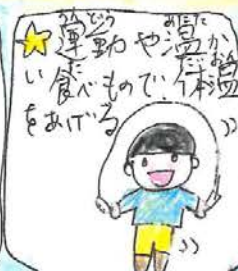 運動や温か
い食べもので、体温
をあげる